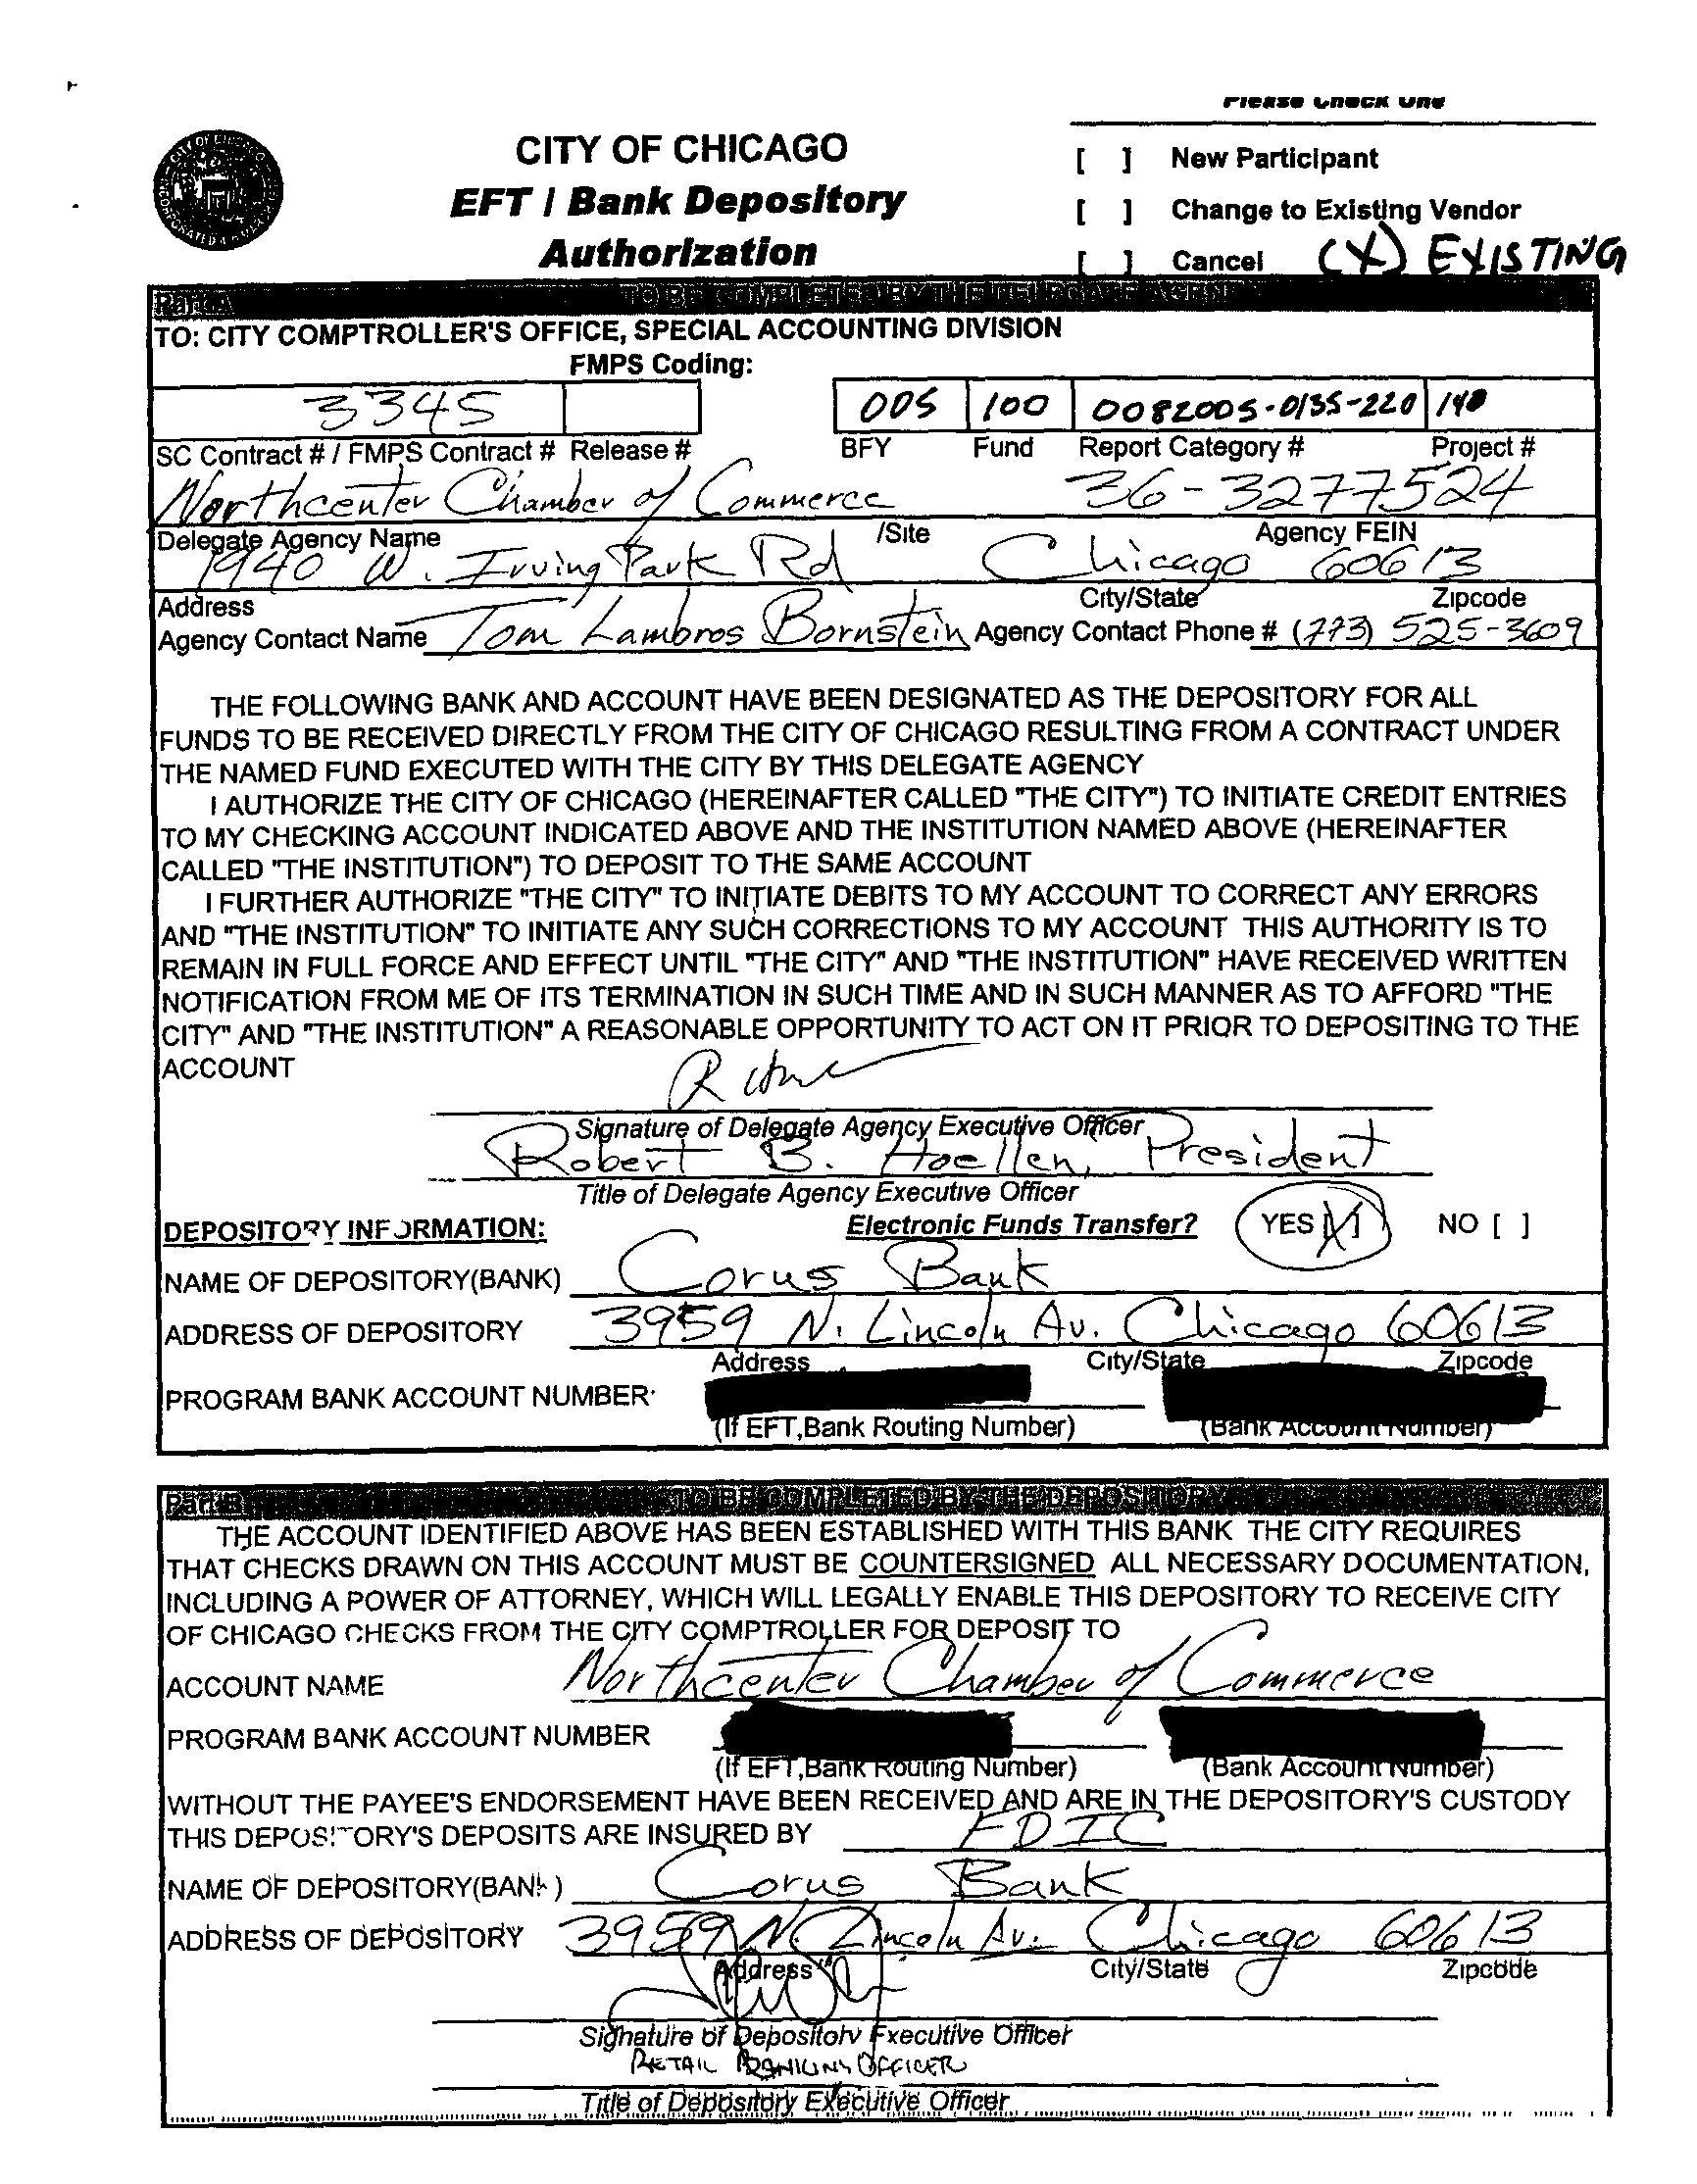 Please Check One
CITY OF CHICAGO
EFT / Bank Depository
Authorization
[ ] New Participant
[ ] Change to Existing Vendor
[ ] Cancel (X) EXISTING
Part A TO BE COMPLETED BY THE DELEGATE AGENCY
TO: CITY COMPTROLLER'S OFFICE, SPECIAL ACCOUNTING DIVISION
FMPS Coding:
3345 005 100 0082005-0135-220 140
SC Contract # / FMPS Contract # Release # BFY Fund Report Category # Project #
Northcenter Chamber of Commerce 36-3277524
Delegate Agency Name /Site Agency FEIN
1940 W. Irving Park Rd Chicago 60613
Address City/State Zipcode
Agency Contact Name Tom Lambros Bornstein Agency Contact Phone # (773) 525-3609
THE FOLLOWING BANK AND ACCOUNT HAVE BEEN DESIGNATED AS THE DEPOSITORY FOR ALL
FUNDS TO BE RECEIVED DIRECTLY FROM THE CITY OF CHICAGO RESULTING FROM A CONTRACT UNDER
THE NAMED FUND EXECUTED WITH THE CITY BY THIS DELEGATE AGENCY
I AUTHORIZE THE CITY OF CHICAGO (HEREINAFTER CALLED "THE CITY") TO INITIATE CREDIT ENTRIES
TO MY CHECKING ACCOUNT INDICATED ABOVE AND THE INSTITUTION NAMED ABOVE (HEREINAFTER
CALLED "THE INSTITUTION") TO DEPOSIT TO THE SAME ACCOUNT
I FURTHER AUTHORIZE "THE CITY" TO INITIATE DEBITS TO MY ACCOUNT TO CORRECT ANY ERRORS
AND "THE INSTITUTION" TO INITIATE ANY SUCH CORRECTIONS TO MY ACCOUNT THIS AUTHORITY IS TO
REMAIN IN FULL FORCE AND EFFECT UNTIL "THE CITY" AND "THE INSTITUTION" HAVE RECEIVED WRITTEN
NOTIFICATION FROM ME OF ITS TERMINATION IN SUCH TIME AND IN SUCH MANNER AS TO AFFORD "THE
CITY" AND "THE INSTITUTION" A REASONABLE OPPORTUNITY TO ACT ON IT PRIOR TO DEPOSITING TO THE
ACCOUNT
Signature of Delegate Agency Executive Officer
Robert B. Hoellen, President
Title of Delegate Agency Executive Officer
DEPOSITORY INFORMATION: Electronic Funds Transfer? YES [X] NO [ ]
NAME OF DEPOSITORY(BANK) Corus Bank
ADDRESS OF DEPOSITORY 3959 N. Lincoln Av. Chicago 60613
Address City/State Zipcode
PROGRAM BANK ACCOUNT NUMBER
(If EFT,Bank Routing Number) (Bank Account Number)
Part B TO BE COMPLETED BY THE DEPOSITORY
THE ACCOUNT IDENTIFIED ABOVE HAS BEEN ESTABLISHED WITH THIS BANK THE CITY REQUIRES
THAT CHECKS DRAWN ON THIS ACCOUNT MUST BE COUNTERSIGNED ALL NECESSARY DOCUMENTATION,
INCLUDING A POWER OF ATTORNEY, WHICH WILL LEGALLY ENABLE THIS DEPOSITORY TO RECEIVE CITY
OF CHICAGO CHECKS FROM THE CITY COMPTROLLER FOR DEPOSIT TO
ACCOUNT NAME Northcenter Chamber of Commerce
PROGRAM BANK ACCOUNT NUMBER
(If EFT,Bank Routing Number) (Bank Account Number)
WITHOUT THE PAYEE'S ENDORSEMENT HAVE BEEN RECEIVED AND ARE IN THE DEPOSITORY'S CUSTODY
THIS DEPOSITORY'S DEPOSITS ARE INSURED BY FDIC
NAME OF DEPOSITORY(BANK) Corus Bank
ADDRESS OF DEPOSITORY 3959 N. Lincoln Av. Chicago 60613
Address City/State Zipcode
Signature of Depository Executive Officer
RETAIL BANKING OFFICER
Title of Depository Executive Officer